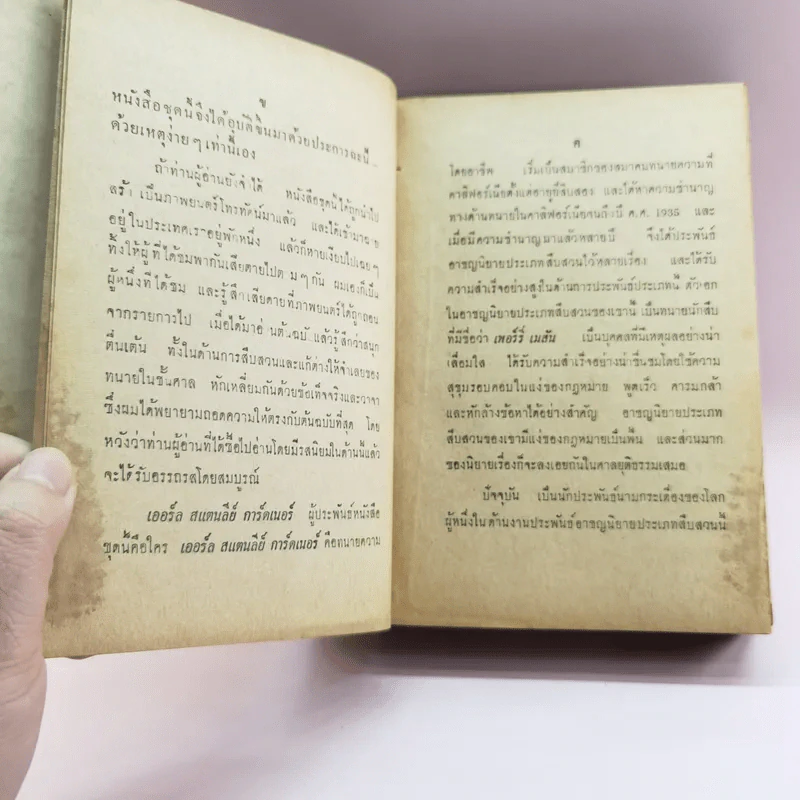 ข
หนังสือชุดนี้จึงได้อุบัติขึ้นมาด้วยประการฉะนี้
ด้วยเหตุง่ายๆ เท่านี้เอง
ถ้าท่านผู้อ่านยังจำได้ หนังสือชุดนี้ได้ถูกนำไป
สร้างเป็นภาพยนตร์โทรทัศน์มาแล้ว และได้เข้ามาฉาย
อยู่ในประเทศเราอยู่พักหนึ่ง แล้วก็หายเงียบไปเฉยๆ
ทิ้งให้ผู้ที่ได้ชมพากันเสียดายไปตามๆ กัน ผมเองก็เป็น
ผู้หนึ่งที่ได้ชม และรู้สึกเสียดายที่ภาพยนตร์ได้ถูกถอน
จากรายการไป เมื่อได้มาอ่านต้นฉบับแล้วรู้สึกว่าสนุก
ตื่นเต้น ทั้งในด้านการสืบสวนและแก้ต่างให้จำเลยของ
ทนายในชั้นศาล หักเหลี่ยมกันด้วยข้อเท็จจริงและวาจา
ซึ่งผมได้พยายามถอดความให้ตรงกับต้นฉบับที่สุด โดย
หวังว่าท่านผู้อ่านที่ได้ซื้อไปอ่านโดยมีรสนิยมในด้านนี้แล้ว
จะได้รับอรรถรสโดยสมบูรณ์
เออร์ล สแตนลีย์ การ์ดเนอร์ ผู้ประพันธ์หนังสือ
ชุดนี้คือใคร เออร์ล สแตนลีย์ การ์ดเนอร์ คือทนายความ
ค
โดยอาชีพ เริ่มเป็นสมาชิกของสมาคมทนายความที่
คาลิฟอร์เนียตั้งแต่อายุยี่สิบสอง และได้หาความชำนาญ
ทางด้านทนายในคาลิฟอร์เนียจนถึงปี ค.ศ. 1935 และ
เมื่อมีความชำนาญมาแล้วหลายปี จึงได้ประพันธ์
อาชญนิยายประเภทสืบสวนไว้หลายเรื่อง และได้รับ
ความสำเร็จอย่างสูงในด้านการประพันธ์ประเภทนี้ ตัวเอก
ในอาชญนิยายประเภทสืบสวนของเขานี้ เป็นทนายนักสืบ
ที่มีชื่อว่า เพอร์รี่ เมสัน เป็นบุคคลที่มีเหตุผลอย่างน่า
เลื่อมใส ได้รับความสำเร็จอย่างน่าชื่นชมโดยใช้ความ
สุขุมรอบคอบในแง่ของกฎหมาย พูดเร็ว คารมกล้า
และหักล้างข้อหาได้อย่างสำคัญ อาชญนิยายประเภท
สืบสวนของเขามีแง่ของกฎหมายเป็นพื้น และส่วนมาก
ของนิยายเรื่องก็จะลงเอยกันในศาลยุติธรรมเสมอ
ปัจจุบัน เป็นนักประพันธ์นามกระเดื่องของโลก
ผู้หนึ่งในด้านงานประพันธ์อาชญนิยายประเภทสืบสวนนี้